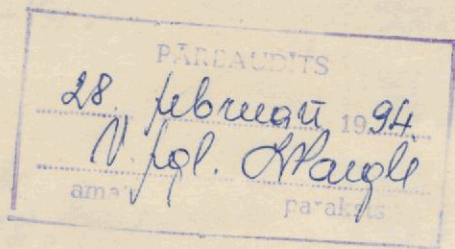 PĀRBAUDĪTS
28. februārī 1994.
V. pgl.
amats paraksts